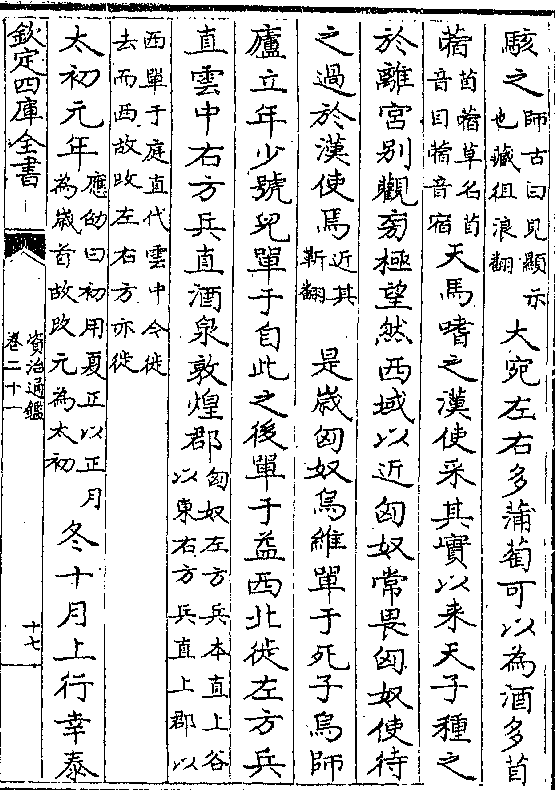 駭之師古曰見顯示也臧徂浪翻大宛左右多蒲萄可以為酒多苜
蓿苜蓿草名苜音目蓿音宿天馬嗜之漢使采其實以来天子種之
於離宫别觀旁極望然西域以近匈奴常畏匈奴使待
之過於漢使焉近其靳翻是歲匈奴烏維單于死子烏師
廬立年少號兒單于自此之後單于益西北徙左方兵
直雲中右方兵直酒泉敦煌郡匈奴左方兵本直上谷以東右方兵直上郡以
西單于庭直代雲中今徙去而西故改左右方亦徙
太初元年應劭曰初用夏正以正月為歲首故改元為太初冬十月上行幸泰
欽定四庫全書
資治通鑑
卷二十一
十七